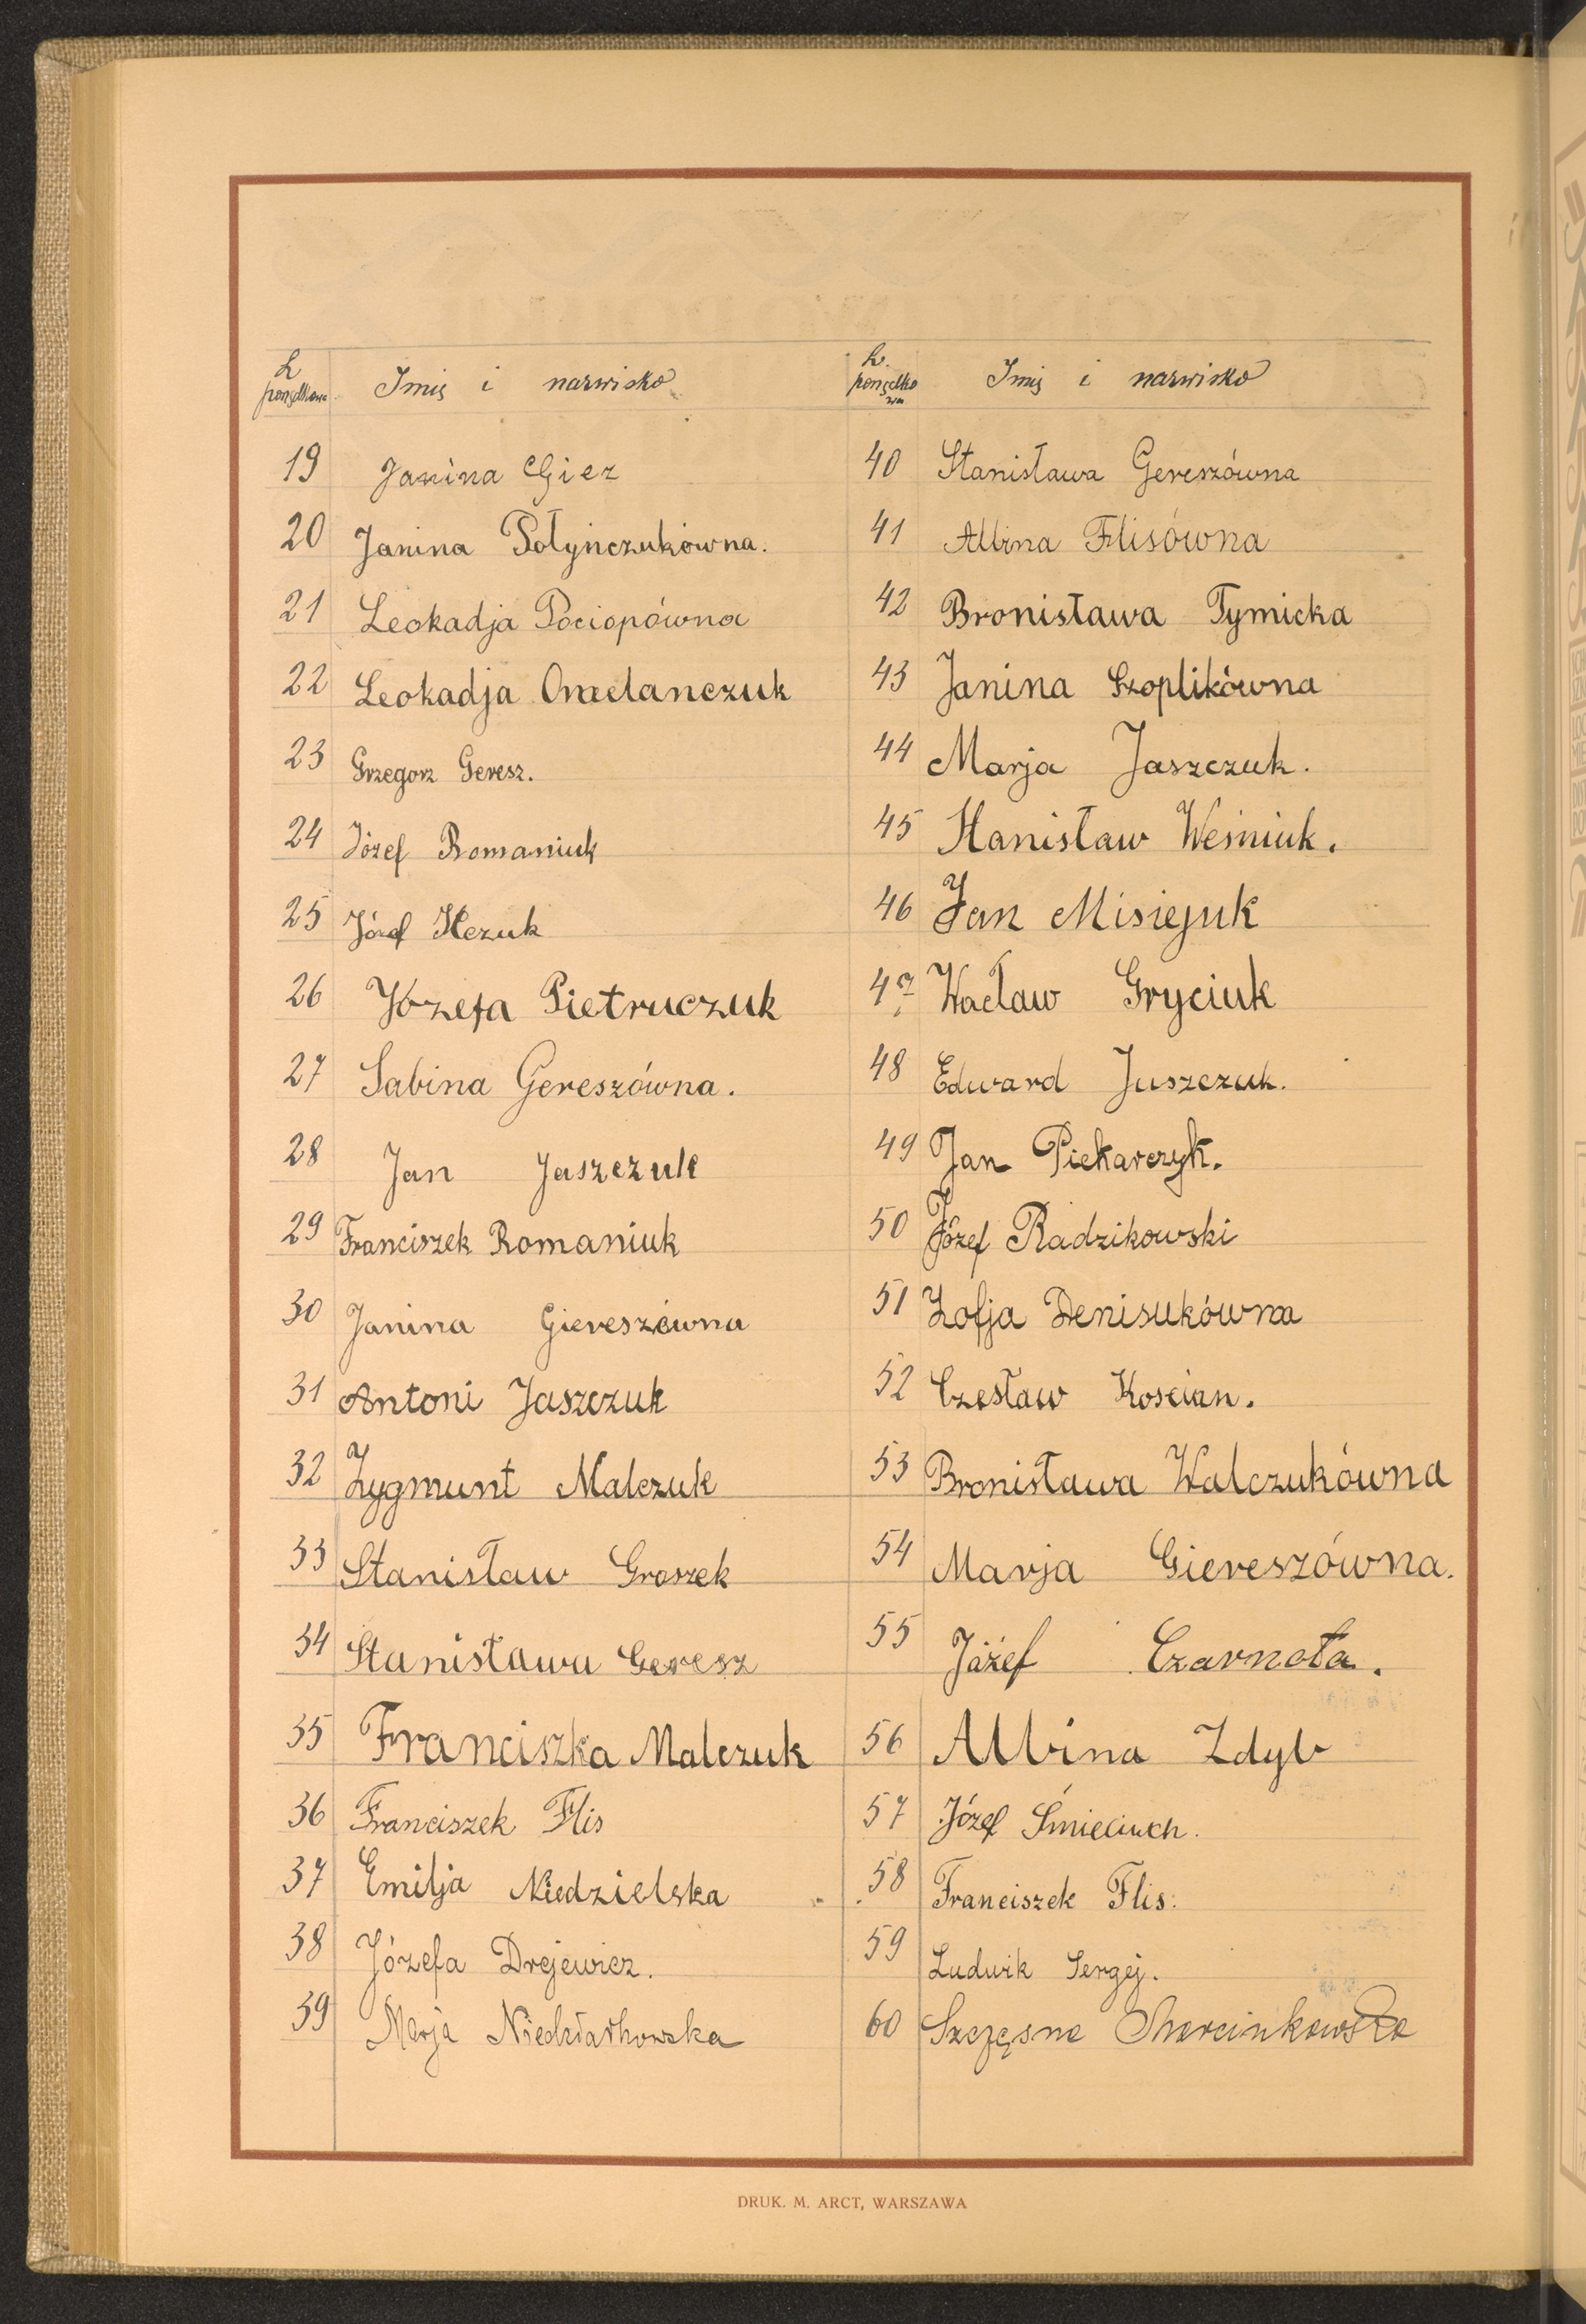 L porządkowa Imię i nazwisko
19 Janina Giez
20 Janina Połyńczukówna.
21 Leokadja Pociopówna
22 Leokadja Omelanczuk
23 Grzegorz Geresz.
24 Józef Romaniuk
25 Józef
26 Józefa Pietruczuk
27 Sabina Gereszówna.
28 Jan Jaszczuk
29 Franciszek Romaniuk
30 Janina Giereszówna
31 Antoni Jaszczuk
32 Zygmunt Malczuk
33 Stanisław Groszek
34 Stanisława Geresz
35 Franciszka Malczuk
36 Franciszek Flis
37 Emilja Niedzielska
38 Józefa Drejewicz.
39 Marja
L. porządko
wa
Imię i nazwisko
40 Stanisława Gereszówna
41 Albina Flisówna
42 Bronisława Tymicka
43 Janina Szoplikówna
44 Marja Jaszczuk.
45 Stanisław Weśniuk.
46 Jan Misiejuk
47 Wacław Gryciuk
48 Edward Juszczuk.
49 Jan Piekarczyk.
50 Józef Radzikowski
51 Zofja Denisukówna
52 Czesław Koscian.
53 Bronisława Walczukówna
54 Marja Giereszówna.
55 Józef Czarnota.
56 Albina Zdyb
57 Józef Śmieciuch.
58 Franciszek Flis.
59 Ludwik Sergej.
60 Szczęsna Marcinkowska
DRUK. M. ARCT, WARSZAWA